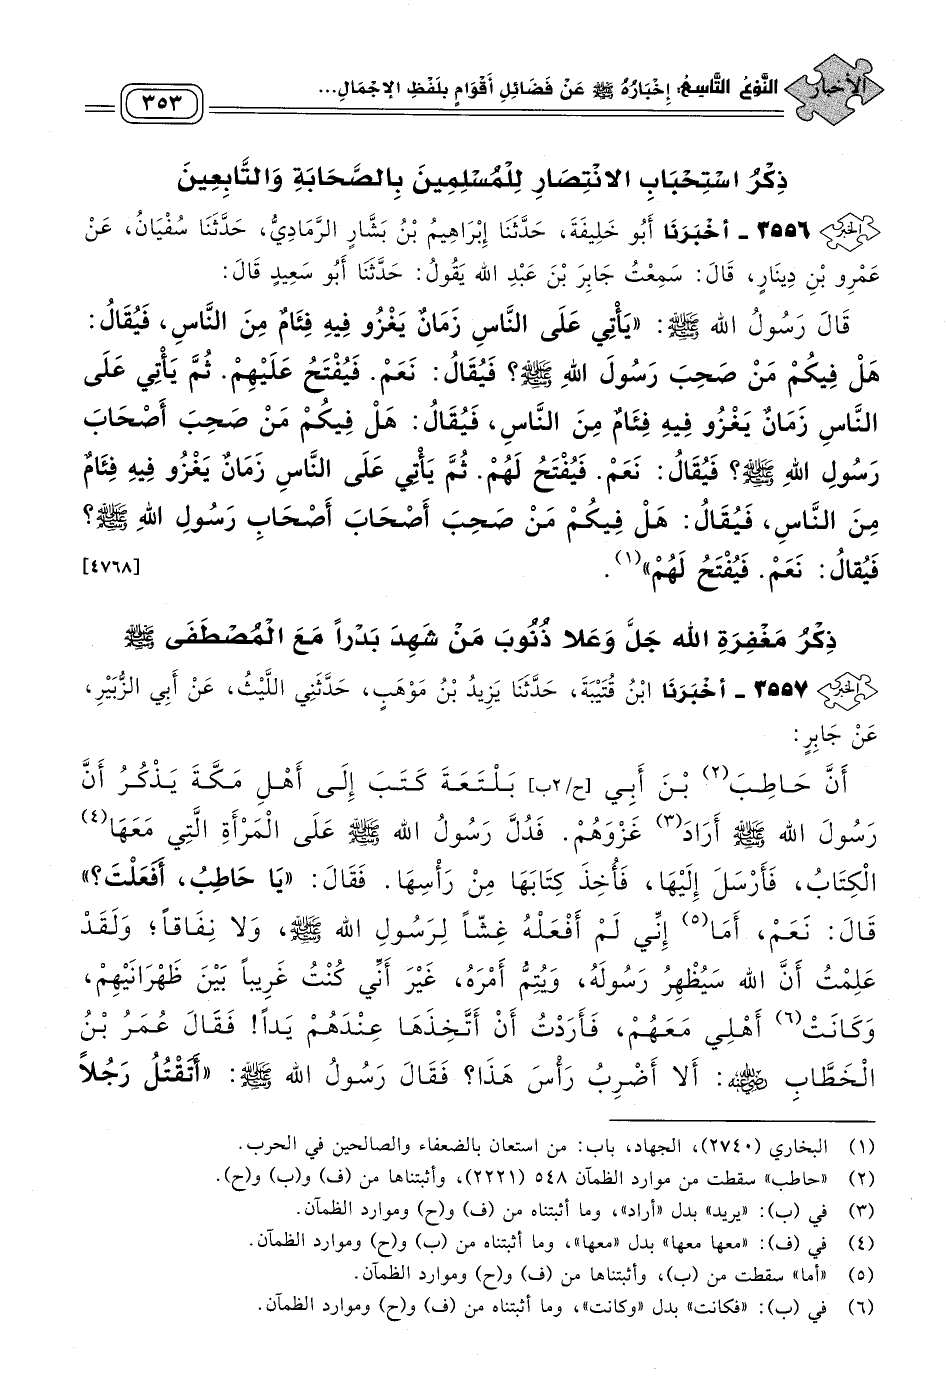 الأخبار
النَّوْعُ التَّاسِعُ: إِخْبَارُهُ ﷺ عَنْ فَضَائِلِ أَقْوَامٍ بِلَفْظِ الإِجْمَالِ...
٣٥٣
ذِكْرُ اسْتِحْبَابِ الانْتِصَارِ لِلْمُسْلِمِينَ بِالصَّحَابَةِ وَالتَّابِعِينَ
٣٥٥٦ - أَخْبَرَنَا أَبُو خَلِيفَةَ، حَدَّثَنَا إِبْرَاهِيمُ بْنُ بَشَّارٍ الرَّمَادِيُّ، حَدَّثَنَا سُفْيَانُ، عَنْ
عَمْرِو بْنِ دِينَارٍ، قَالَ: سَمِعْتُ جَابِرَ بْنَ عَبْدِ الله يَقُولُ: حَدَّثَنَا أَبُو سَعِيدٍ قَالَ:
قَالَ رَسُولُ الله ﷺ: «يَأْتِي عَلَى النَّاسِ زَمَانٌ يَغْزُو فِيهِ فِئَامٌ مِنَ النَّاسِ، فَيُقَالُ:
هَلْ فِيكُمْ مَنْ صَحِبَ رَسُولَ اللهِ ﷺ؟ فَيُقَالُ: نَعَمْ. فَيُفْتَحُ عَلَيْهِمْ. ثُمَّ يَأْتِي عَلَى
النَّاسِ زَمَانٌ يَغْزُو فِيهِ فِئَامٌ مِنَ النَّاسِ، فَيُقَالُ: هَلْ فِيكُمْ مَنْ صَحِبَ أَصْحَابَ
رَسُولِ اللهِ ﷺ؟ فَيُقَالُ: نَعَمْ. فَيُفْتَحُ لَهُمْ. ثُمَّ يَأْتِي عَلَى النَّاسِ زَمَانٌ يَغْزُو فِيهِ فِئَامٌ
مِنَ النَّاسِ، فَيُقَالُ: هَلْ فِيكُمْ مَنْ صَحِبَ أَصْحَابَ أَصْحَابِ رَسُولِ اللهِ ﷺ؟
فَيُقَالُ: نَعَمْ. فَيُفْتَحُ لَهُمْ»(١). [٤٧٦٨]
ذِكْرُ مَغْفِرَةِ الله جَلَّ وَعَلا ذُنُوبَ مَنْ شَهِدَ بَدْراً مَعَ الْمُصْطَفَى ﷺ
٣٥٥٧ - أَخْبَرَنَا ابْنُ قُتَيْبَةَ، حَدَّثَنَا يَزِيدُ بْنُ مَوْهَبٍ، حَدَّثَنِي اللَّيْثُ، عَنْ أَبِي الزُّبَيْرِ،
عَنْ جَابِرٍ:
أَنَّ حَاطِبَ(٢) بْنَ أَبِي [ح/٢ب] بَلْتَعَةَ كَتَبَ إِلَى أَهْلِ مَكَّةَ يَذْكُرُ أَنَّ
رَسُولَ الله ﷺ أَرَادَ(٣) غَزْوَهُمْ. فَدُلَّ رَسُولُ الله ﷺ عَلَى الْمَرْأَةِ الَّتِي مَعَهَا(٤)
الْكِتَابُ، فَأَرْسَلَ إِلَيْهَا، فَأُخِذَ كِتَابَهَا مِنْ رَأْسِهَا. فَقَالَ: «يَا حَاطِبُ، أَفَعَلْتَ؟»
قَالَ: نَعَمْ، أَمَا(٥) إِنِّي لَمْ أَفْعَلْهُ غِشّاً لِرَسُولِ الله ﷺ، وَلا نِفَاقاً؛ وَلَقَدْ
عَلِمْتُ أَنَّ الله سَيُظْهِرُ رَسُولَهُ، وَيُتِمُّ أَمْرَهُ، غَيْرَ أَنِّي كُنْتُ غَرِيباً بَيْنَ ظَهْرَانَيْهِمْ،
وَكَانَتْ(٦) أَهْلِي مَعَهُمْ، فَأَرَدْتُ أَنْ أَتَّخِذَهَا عِنْدَهُمْ يَداً! فَقَالَ عُمَرُ بْنُ
الْخَطَّابِ رضي الله عنه: أَلا أَضْرِبُ رَأْسَ هَذَا؟ فَقَالَ رَسُولُ الله ﷺ: «أَتَقْتُلُ رَجُلاً
(١) البخاري (٢٧٤٠)، الجهاد، باب: من استعان بالضعفاء والصالحين في الحرب.
(٢) «حاطب» سقطت من موارد الظمآن ٥٤٨ (٢٢٢١)، وأثبتناها من (ف) و(ب) و(ح).
(٣) في (ب): «يريد» بدل «أراد»، وما أثبتناه من (ف) و(ح) وموارد الظمآن.
(٤) في (ف): «معها معها» بدل «معها»، وما أثبتناه من (ب) و(ح) وموارد الظمآن.
(٥) «أما» سقطت من (ب)، وأثبتناها من (ف) و(ح) وموارد الظمآن.
(٦) في (ب): «فكانت» بدل «وكانت»، وما أثبتناه من (ف) و(ح) وموارد الظمآن.